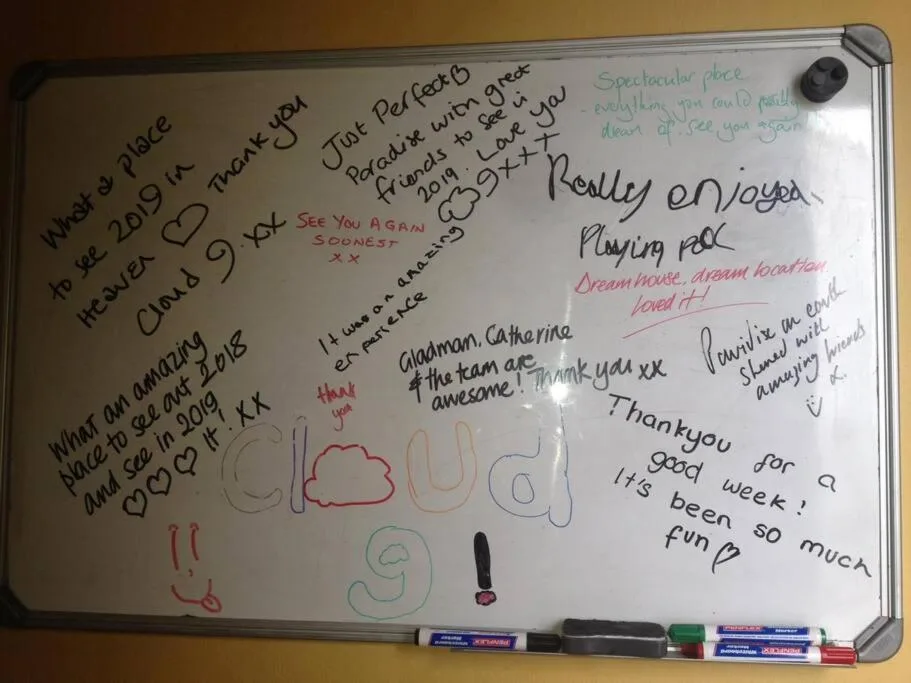 What a place
to see 2019 in
HEAVEN ♡ Thank you
Cloud 9. XX
Just Perfect
Paradise with great
friends to see in
2019. Love you
9 XXX
SEE YOU AGAIN
SOONEST
x x
It was an amazing
experience
Spectacular place
- everything you could possibly
dream of. see you again
Really enjoyed
Playing pool
Dream house, dream location
loved it!
Paridise on earth
Shared with
amazing friends
What an amazing
place to see out 2018
and see in 2019
♡♡♡ It! XX
thank
you
Gladman, Catherine
& the team are
awesome! Thank you xx
Thankyou for a
good week!
It's been so much
fun ♡
Cloud
9!
PENFLEX
Whiteboard
Marker
PENFLEX
Marker
PENFLEX
Whiteboard
Marker